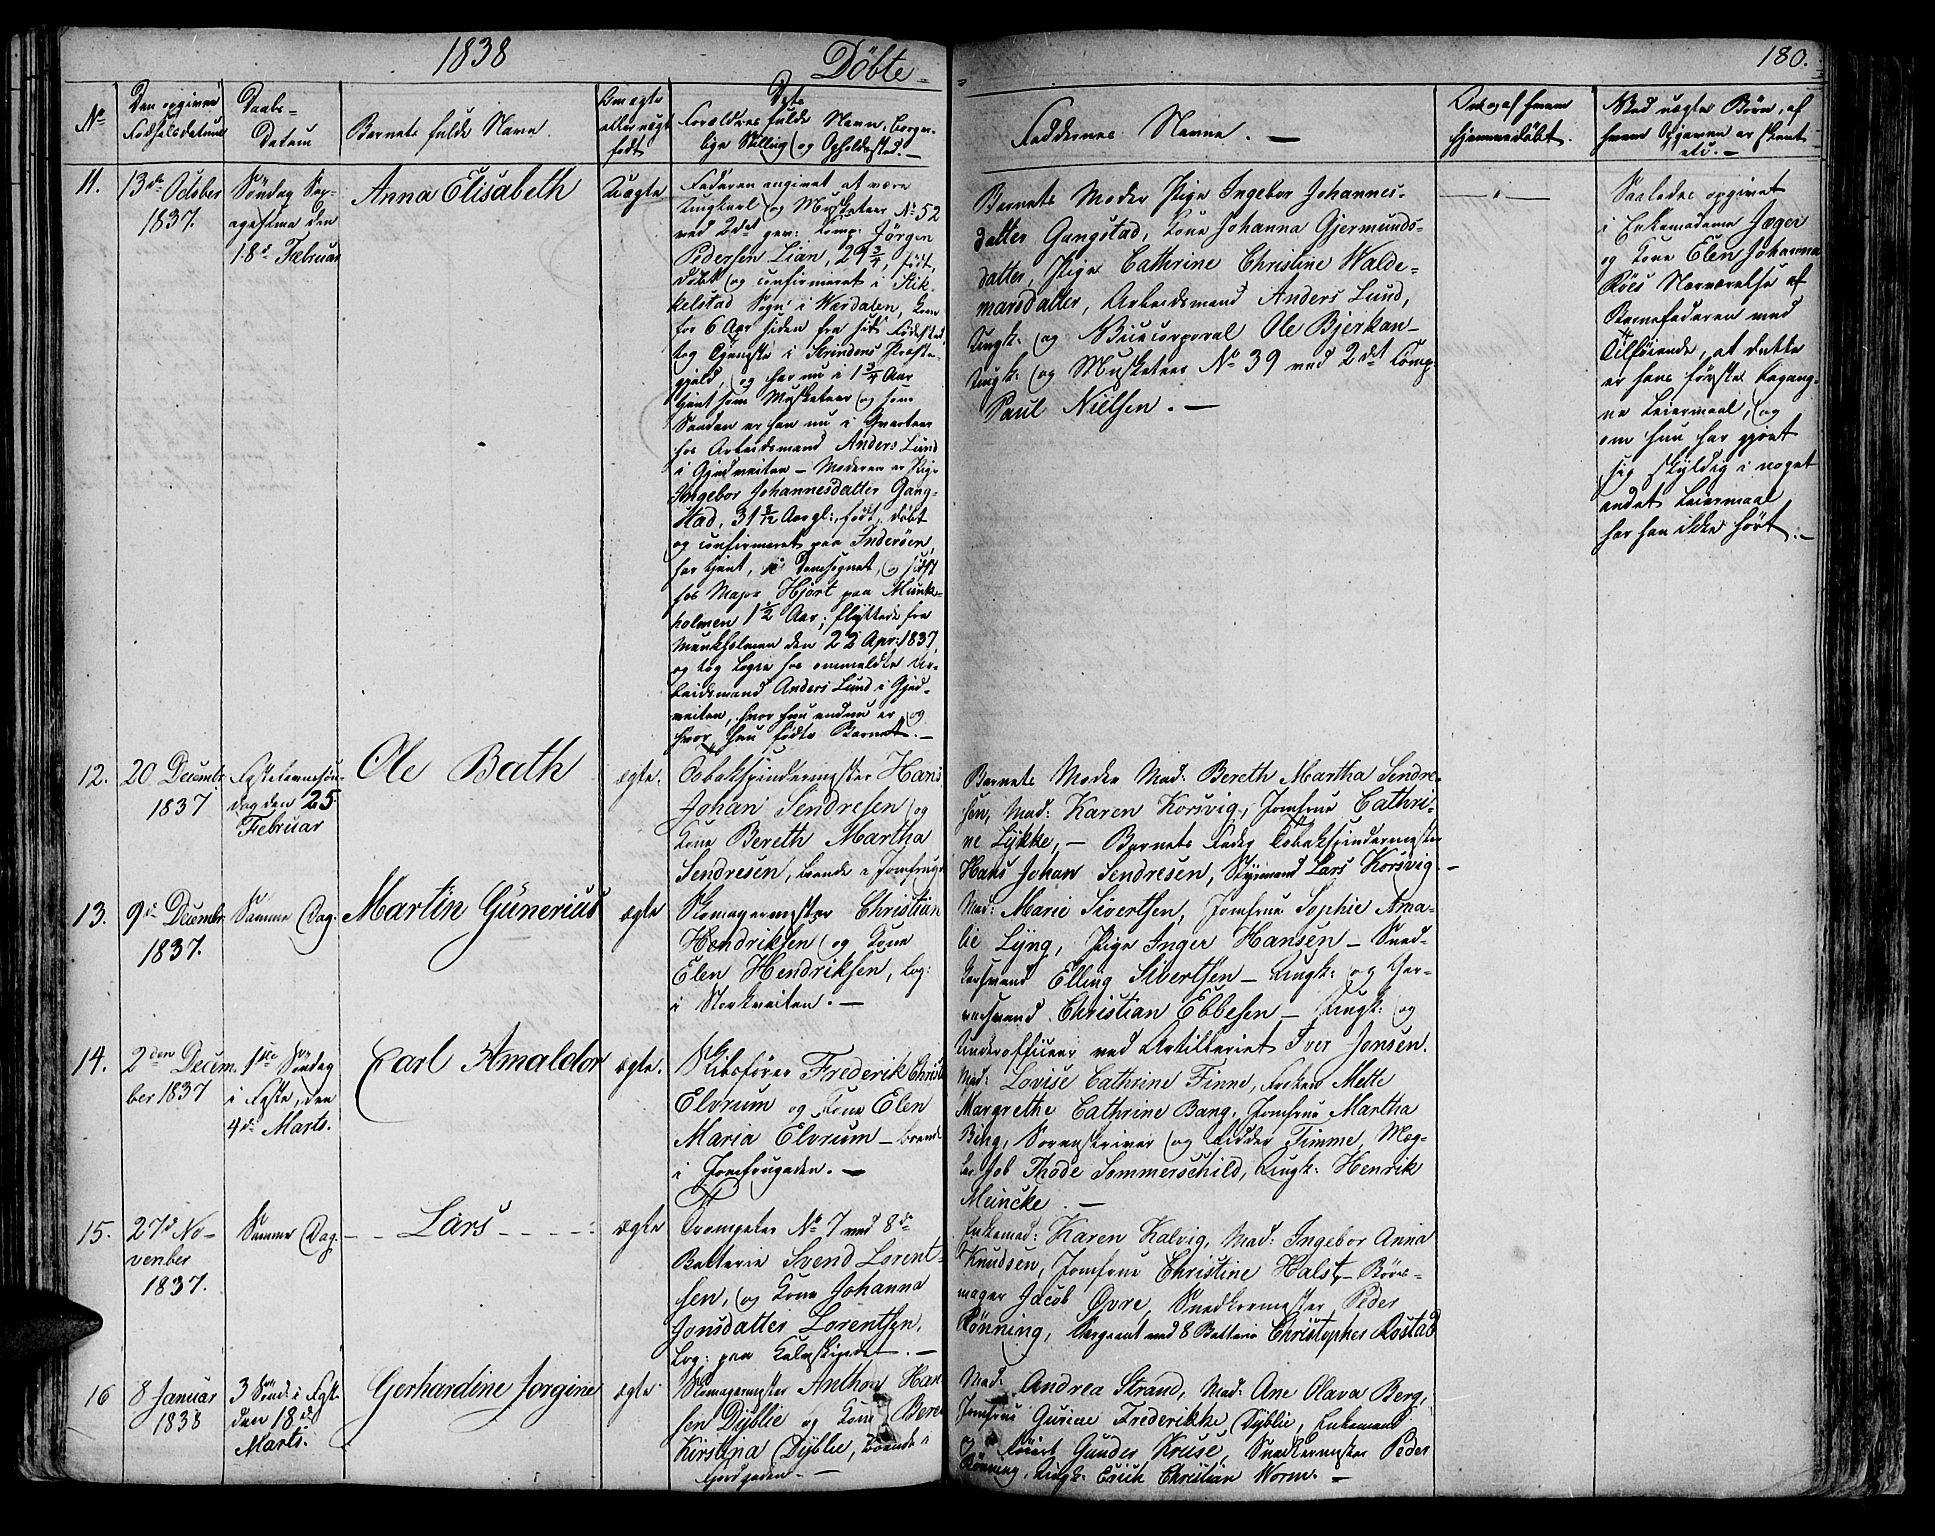 1838
Döbte
180.
No
Den opgivne Fødselsdatum
Daabs-Datum
Barnets fulde Navn.
Om ægte eller uægte født
Dets Forældres fulde Navn, borgerlige Stilling og Opholdssted.
Faddernes Navne. —
Om og af hvem hjemmedøbt.
Ved uægte Børn, af hvem Opgaven er skeet etc. —
11.
13de October
1837.
Söndag Sep-
agesima den
18de Februar
Anna Elisabeth
Uægte
Faderen angivet at være
Ungkarl og Musketeer No 52
ved 2det gev: Comp. Jörgen
Pedersen Lian, 29 3/4, født,
døbt og confirmeret i Stik-
kelstad Sogn i Værdalen, kom
for 6 Aar siden fra sit Fødested
tog Tjeneste i Strindens Præste-
gjeld, og har nu i 1 3/4 Aar
tjent som Musketeer og som
Saadan er han nu i Qvarteer
hos Arbeidsmand Anders Lund
i Gjedveiten – Moderen er Pige
Ingebor Johannesdatter Gang-
stad, 31 8/12 Aar gl:, født, döbt
og confirmeret paa Inderöen,
har tjent, i Domsognet, og sidst
hos Major Hjort paa Munk-
holmen 1 1/2 Aar; flyttede fra
Munkholmen den 22 Apr: 1837,
og tog Logie hos ommeldte Ar-
beidsmand Anders Lund i Gjed-
veiten, hvor hun endnu er og
hvor hun fødte Barnet. —
Barnets Moder Pige Ingebor Johannes-
datter Gangstad, Kone Johanna Gjermunds-
datter, Pige Cathrine Christine Walde-
marsdatter, Arbeidsmand Anders Lund,
Ungk: og Vicecorporal Ole Bjerkan –
Ungk: og Musketeer No 39 ved 2det Comp.
Paul Nielsen. —
Saaledes opgivet
i Enkemadame Jæger
og Kone Elen Johanna
Röes Nærværelse af
Barnefaderen med
Tilföiende, at dette
er hans förste begang-
ne Leiermaal, og
om hun har gjort
sig skyldig i noget
andet Leiermaal
har han ikke hört. —
12.
20 Decembr
1837.
Fastelavnssön-
dag den 25
Februar
Ole Bath
ægte.
Tobakspindermester Hans
Johan Sendresen og
Kone Bereth Martha
Sendresen, boende i Jomfrug:
Barnets Moder Mad: Bereth Martha Sendre-
sen, Mad: Karen Korsvig, Jomfrue Cathri-
ne Lykke, – Barnets Fader Tobakspindermester
Hans Johan Sendresen, Styrmand Lars Korsvig. —
13.
9de Decembr
1837.
Samme Dag.
Martin Gunerius
ægte
Skomagermester Christian
Hendriksen og Kone
Elen Hendriksen, log:
i Storkveiten. —
Mad: Marie Sivertsen, Jomfrue Sophie Ama-
lie Lyng, Pige Inger Hansen – Sned-
kersvend Elling Sivertsen – Ungk: og Gar-
versvend Christian Ebbesen – Ungk: og
Underofficeer ved Artilleriet Iver Jonsen.
14.
2den Decem-
ber 1837
1ste Söndag
i Faste, den
4de Marts.
Carl Amaldor
ægte.
Skibsfører Frederik Christ:
Elvrum og Kone Elen
Maria Elvrum – boende
i Jomfrugaden. —
Mad: Lovise Cathrine Finne, Frøken Mette
Margrethe Cathrine Bang, Jomfrue Martha
Bing, Sorenskriver og Ridder Finne, Mæg-
ler Job Thode Sommerschild, Ungk: Henrik
Meincke. —
15.
27de No-
venber
1837.
Samme Dag.
Lars
ægte
Trompeter No 7 ved 8de
Batterie Svend Lorent-
sen, og Kone Johanna
Jonsdatter Lorentsen,
log: paa Kalvskindet. —
Enkemad: Karen Kalvig, Mad: Ingebor Anna
Knudsen, Jomfrue Christine Halst – Børs-
mager Jacob Øvre, Snedkermester Peder
Rönning, Sergeant ved 8 Batterie Christopher Rostad
16
8 Januar
1838
3 Sönd: i Faste
den 18de
Marts.
Gerhardine Jorgine
ægte
Skomagermester Anthon Han-
sen Dyblie og Kone Bere
Kirstina Dyblie, boende i
Gjordgaden. —
Mad: Andrea Strand, Mad: Ane Olava Berg,
Jomfrue Gurine Frederikke Dyblie, Enkemand
Gunder Kruse, Snedkermester Peder
Rönning, Ungk: Erich Christian Worm. —